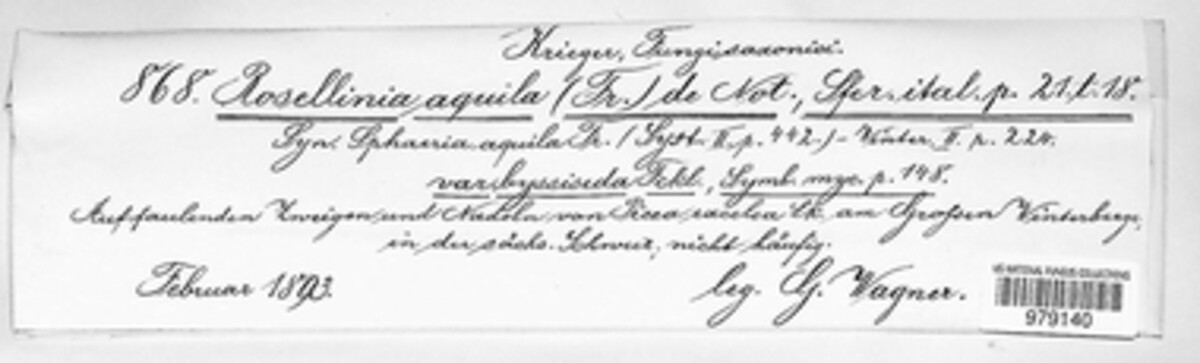 Krieger, Fungi saxonici.
868. Rosellinia aquila (Fr.) de Not., Sfer. ital. p. 21. t. 18.
Syn. Sphaeria aquila Fr. (Syst. II. p. 442.) - Winter. II. p. 224.
var. byssiseda Fckl., Symb. myc. p. 148.
Auf faulenden Zweigen und Nadeln von Picea excelsa Lk. am Großen Winterberge,
in der sächs. Schweiz, nicht häufig.
Februar 1893. leg. G. Wagner.
US NATIONAL FUNGUS COLLECTIONS
979140